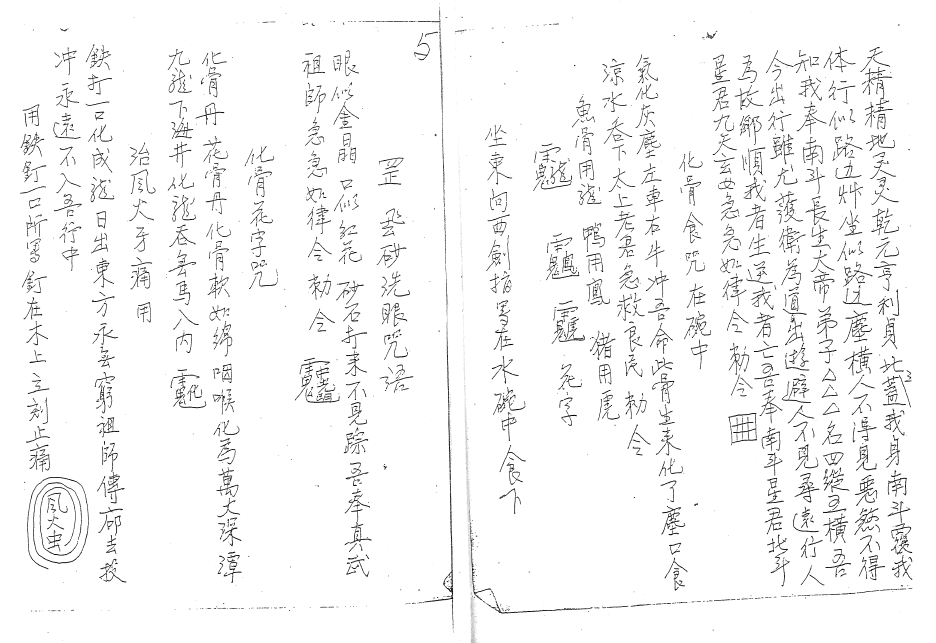 天精精地灵灵乾元亨利貞北斗蓋我身南斗覆我
体行似路边艸坐似路边塵橫人不得見惡煞不得
知我奉南斗長生大帝弟子△△△名四縱五橫吾
今出行雖尤護衛為道出遊避人不見尋遠行人
為故鄉順我者生逆我者亡吾奉南斗星君北斗
星君九天玄女急急如律令勅令
化骨食咒在碗中
氣化灰塵左車右牛冲吾命此骨生来化了塵口食
涼水吞下太上老君急救良民勅令
魚骨用龍 鴨用鳳 猪用虎
花字
坐東向西劍指書在水碗中食下
5
罡 飛砂洗眼咒语
眼似金晶口似紅花砂石打来不見踪吾奉真武
祖師急急如律令勅令
化骨花字咒
化骨丹花骨丹化骨軟如綿咽喉化為萬丈深潭
九龍下海井化龍吞每馬入內
治風火牙痛用
鉄打一口化成龍日出東方永無窮祖師傳邪去投
冲永遠不入吾行中
用鉄釘一口所写釘在木上立刻止痛
風火虫